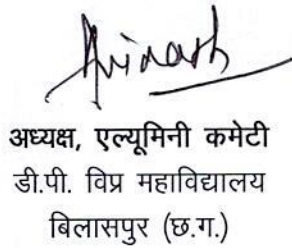 Avinash
अध्यक्ष, एल्यूमिनी कमेटी
डी.पी. विप्र महाविद्यालय
बिलासपुर (छ.ग.)